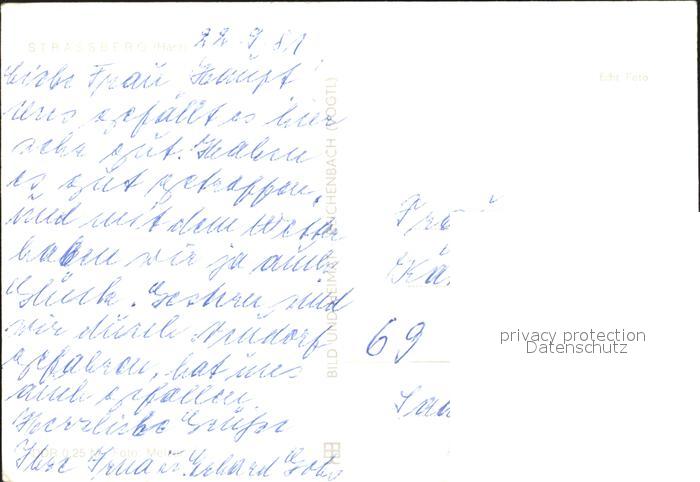 22.9.81
STRASSBERG (Harz)
Liebe Frau Haupt!
Uns gefällt es hier
sehr gut. Haben
es gut getroffen,
und mit dem Wetter
haben wir ja auch
Glück. Gestern sind
wir durch Neudorf
gefahren, hat uns
auch gefallen.
Herzliche Grüße
Ihre Irma u. Gerhard
DDR 0,25 M Foto:
BILD UND HEIMAT REICHENBACH (VOGTL)
Echt Foto
69
privacy protection
Datenschutz